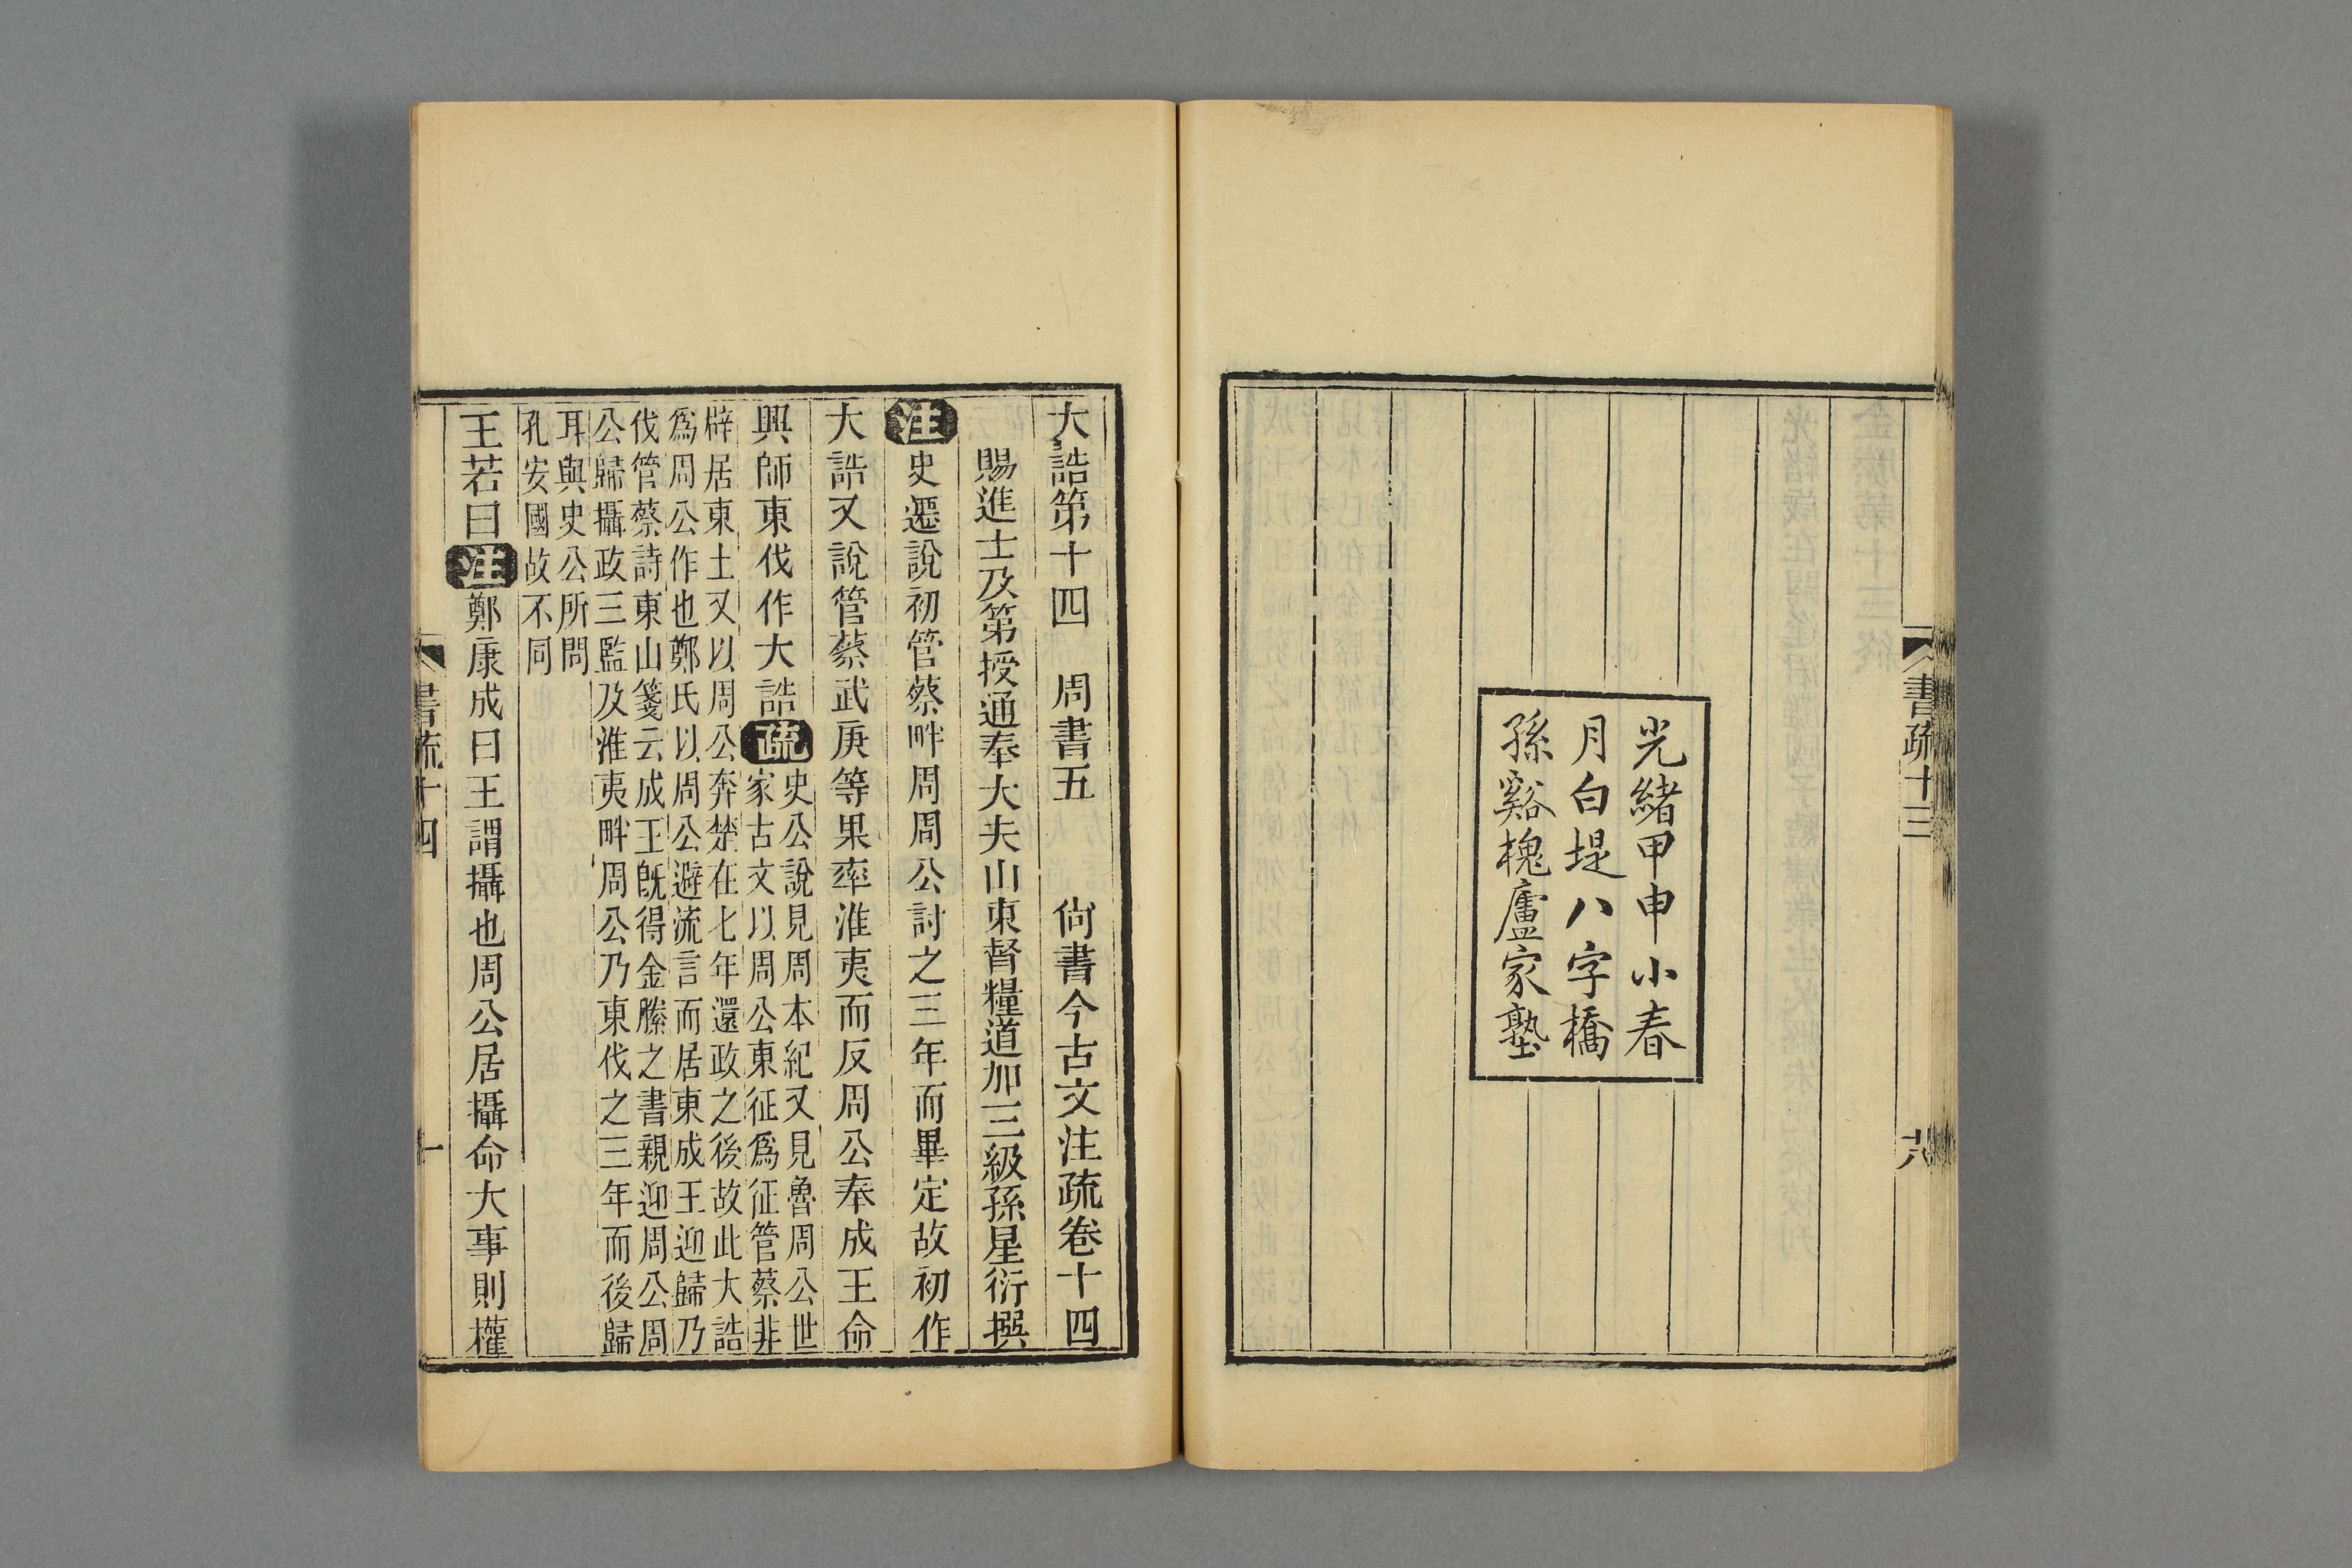 書疏十三
光緒甲申小春
月白堤八字橋
孫谿槐廬家塾
大誥第十四　周書五　　尙書今古文注疏卷十四
賜進士及第授通奉大夫山東督糧道加三級孫星衍撰
注史遷說初管蔡畔周周公討之三年而畢定故初作
大誥又說管蔡武庚等果率淮夷而反周公奉成王命
興師東伐作大誥疏
史公說見周本紀又見魯周公世
家古文以周公東征爲征管蔡非
辟居東土又以周公奔楚在七年還政之後故此大誥
爲周公作也鄭氏以周公避流言而居東成王迎歸乃
伐管蔡詩東山箋云成王旣得金縢之書親迎周公周
公歸攝政三監及淮夷畔周公乃東伐之三年而後歸
耳與史公所問
孔安國故不同
王若曰注鄭康成曰王謂攝也周公居攝命大事則權
書疏十四
一